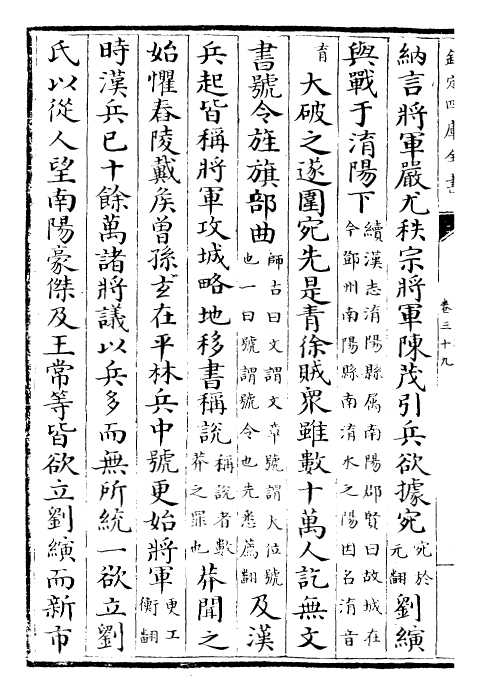 欽定四庫全書
卷三十九
納言將軍嚴尤秩宗將軍陳茂引兵欲據宛宛於元翻劉縯
與戰于淯陽下續漢志淯陽縣属南陽郡賢曰故城在今鄧州南陽縣南淯水之陽因名淯音
育大破之遂圍宛先是青徐賊衆雖數十萬人訖無文
書號令旌旗部曲師古曰文謂文章號謂大位號也一曰號謂號令也先悉薦翻及漢
兵起皆稱將軍攻城略地移書稱説稱説者數莽之罪也莽聞之
始懼舂陵戴矦曾孫玄在平林兵中號更始將軍更工衡翻
時漢兵已十餘萬諸將議以兵多而無所統一欲立劉
氏以從人望南陽豪傑及王常等皆欲立劉縯而新市